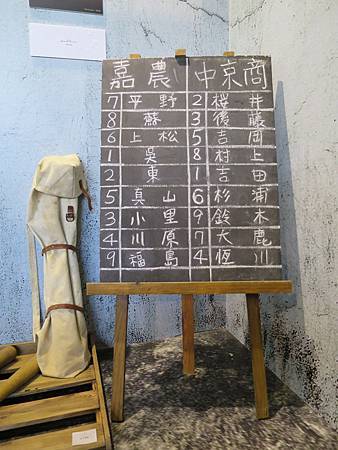 嘉農 中京商
7 平野 2 櫻井
8 蘇 3 後藤
6 上松 5 吉岡
1 吳 8 村上
2 東 1 吉田
5 真山 6 杉浦
3 小里 9 鈴木
4 川原 7 大鹿
9 福島 4 恆川